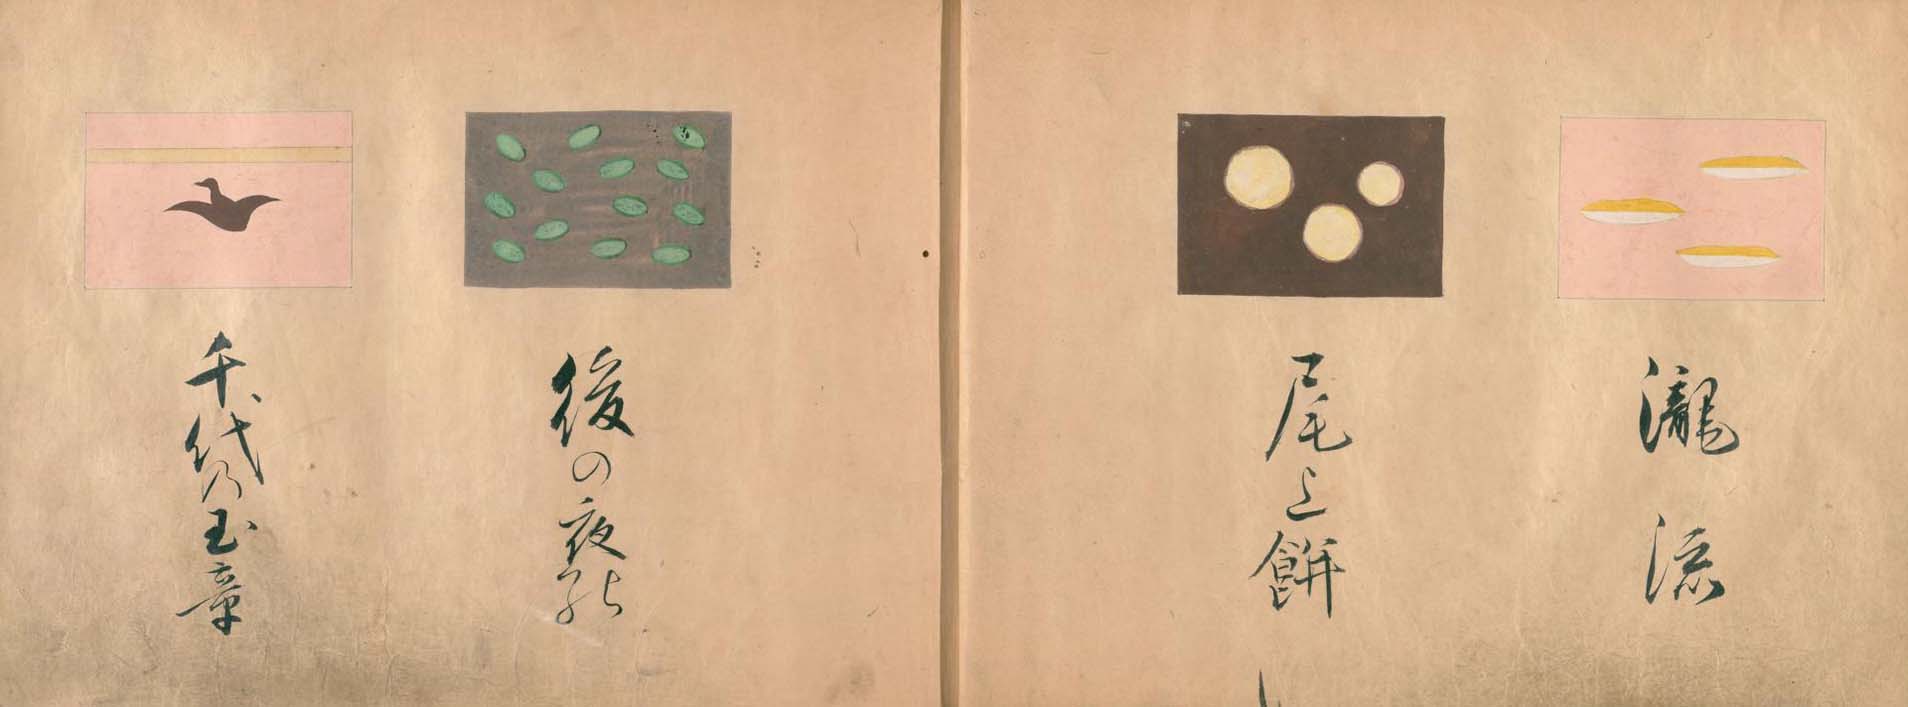 瀧流
尾上餅
後の夜
千代乃玉章